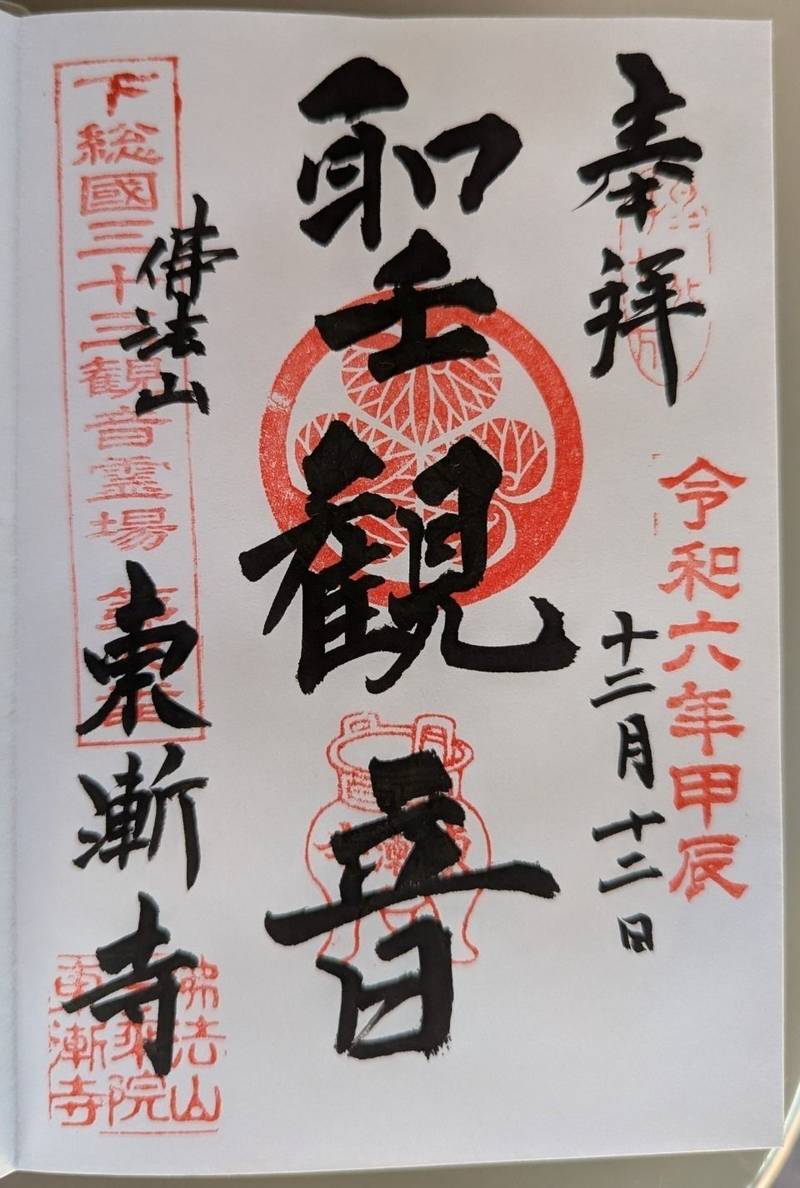 奉拝
令和六年甲辰
十二月十二日
聖観音
佛法山
東漸寺
下総國三十三観音霊場
佛法山
乗院
東漸寺